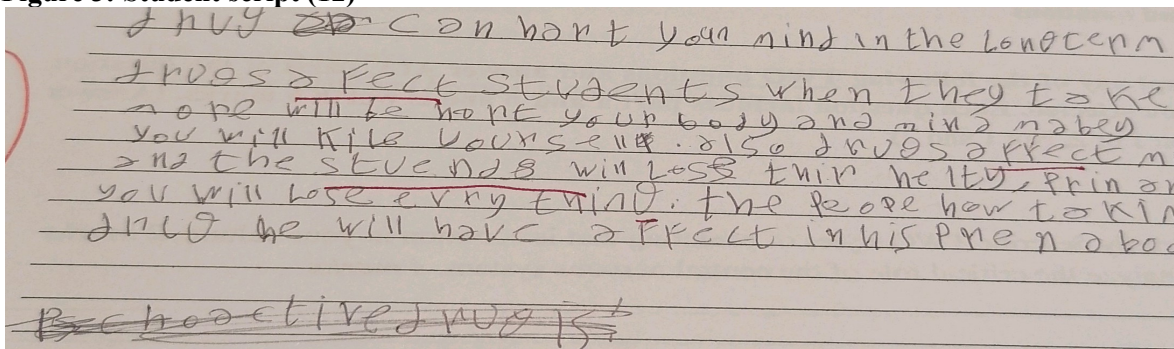 drug can hort your mind in the Longterm
drugs affect students when they take
more will be hort your body and mind mabey
you will Kile yourself. also drugs affect m
and the stuends will Loss thir helty, frin or
you will Lose evry thing. the Peope how takin
drug he will have affect in his